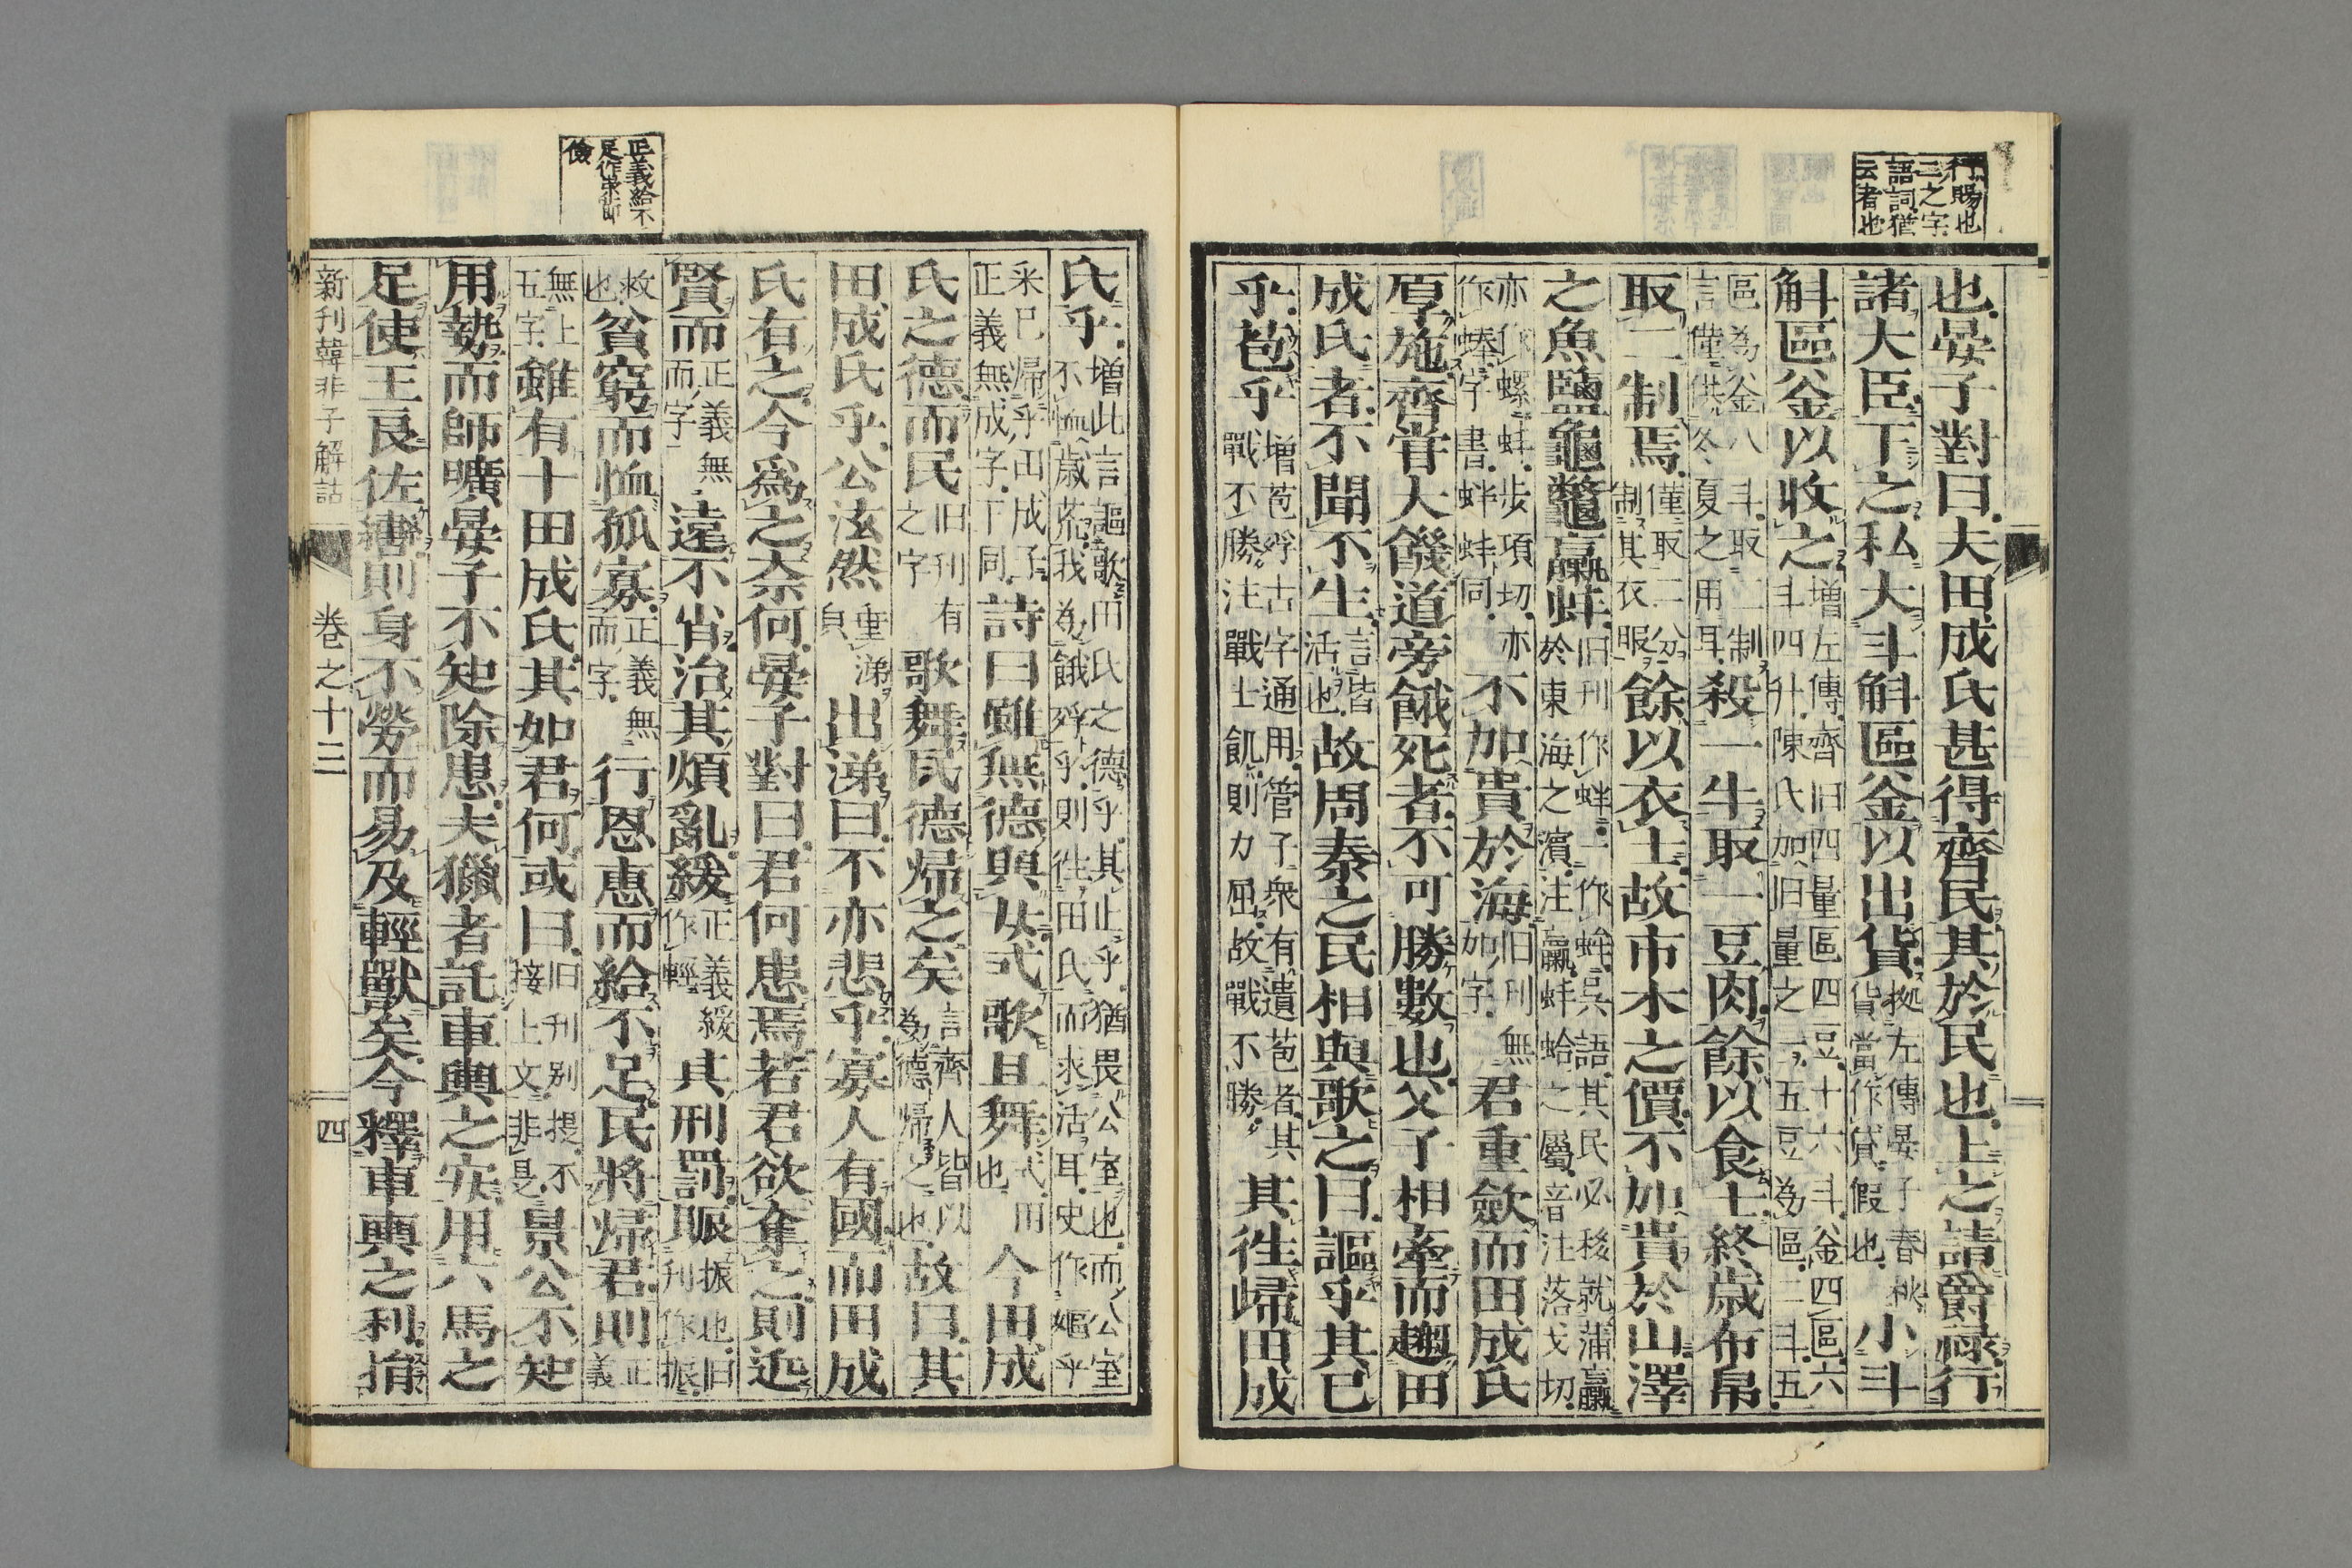 行賜也
二之字
語詞猶
云者也
也晏子對曰夫田成氏甚得齊民其於民也上之請爵祿行
諸大臣下之私大斗斛區釜以出貨拠左傳晏子春秋貨當作貸假也小斗
斛區釜以收之增左傳齊旧四量區四豆十六斗釜四區六斗四升陳氏加旧量之一五豆為區二斗五
區為釜八斗取一制言僅供冬夏之用耳殺一牛取一豆肉餘以食士終歲布帛
取二制焉僅取二分制其衣服餘以衣士故市木之價不加貴於山澤
之魚鹽龜鼈蠃蚌旧刊作蚌一作蛤吳語其民必移就蒲蠃於東海之濱注蠃蚌蛤之屬音注落戈切
亦作螺蚌步項切亦作蜯字書蚌蚌同不加貴於海旧刊無加字君重斂而田成氏
厚施齊甞大饑道旁餓死者不可勝數也父子相牽而趨田
成氏者不聞不生言皆活也故周秦之民相與歌之曰謳乎其已
乎苞乎增苞殍古字通用管子衆有遺苞者其戰不勝注戰士飢則力屈故戰不勝其徃歸田成
正義給不
足作求節
儉
氏乎增此言謳歌田氏之德乎其止乎猶畏公室也而公室不恤歲荒我為餓殍乎則徃田氏而求活耳史作嫗乎
采巳歸乎田成子正義無成字下同詩曰雖無德與女式歌且舞式用也今田成
氏之德而民旧刊有之字歌舞民德歸之矣言齊人皆以為德歸之也故曰其
田成氏乎公泫然垂涕貟出涕曰不亦悲乎寡人有國而田成
氏有之今爲之奈何晏子對曰君何患焉若君欲奪之則近
賢而正義無而字遠不肖治其煩亂緩正義緩作輕其刑罰賑振也旧刊作振
救也貧窮而恤孤寡正義無而字行恩惠而給不足民將歸君則正義
無上五字雖有十田成氏其如君何或曰旧刊別提不接上文非是景公不知
用埶而師曠晏子不知除患夫獵者託車輿之安用六馬之
足使王良佐轡則身不勞而易及輕獸矣今釋車輿之利捐
新刊韓非子解詁 卷之十三 四